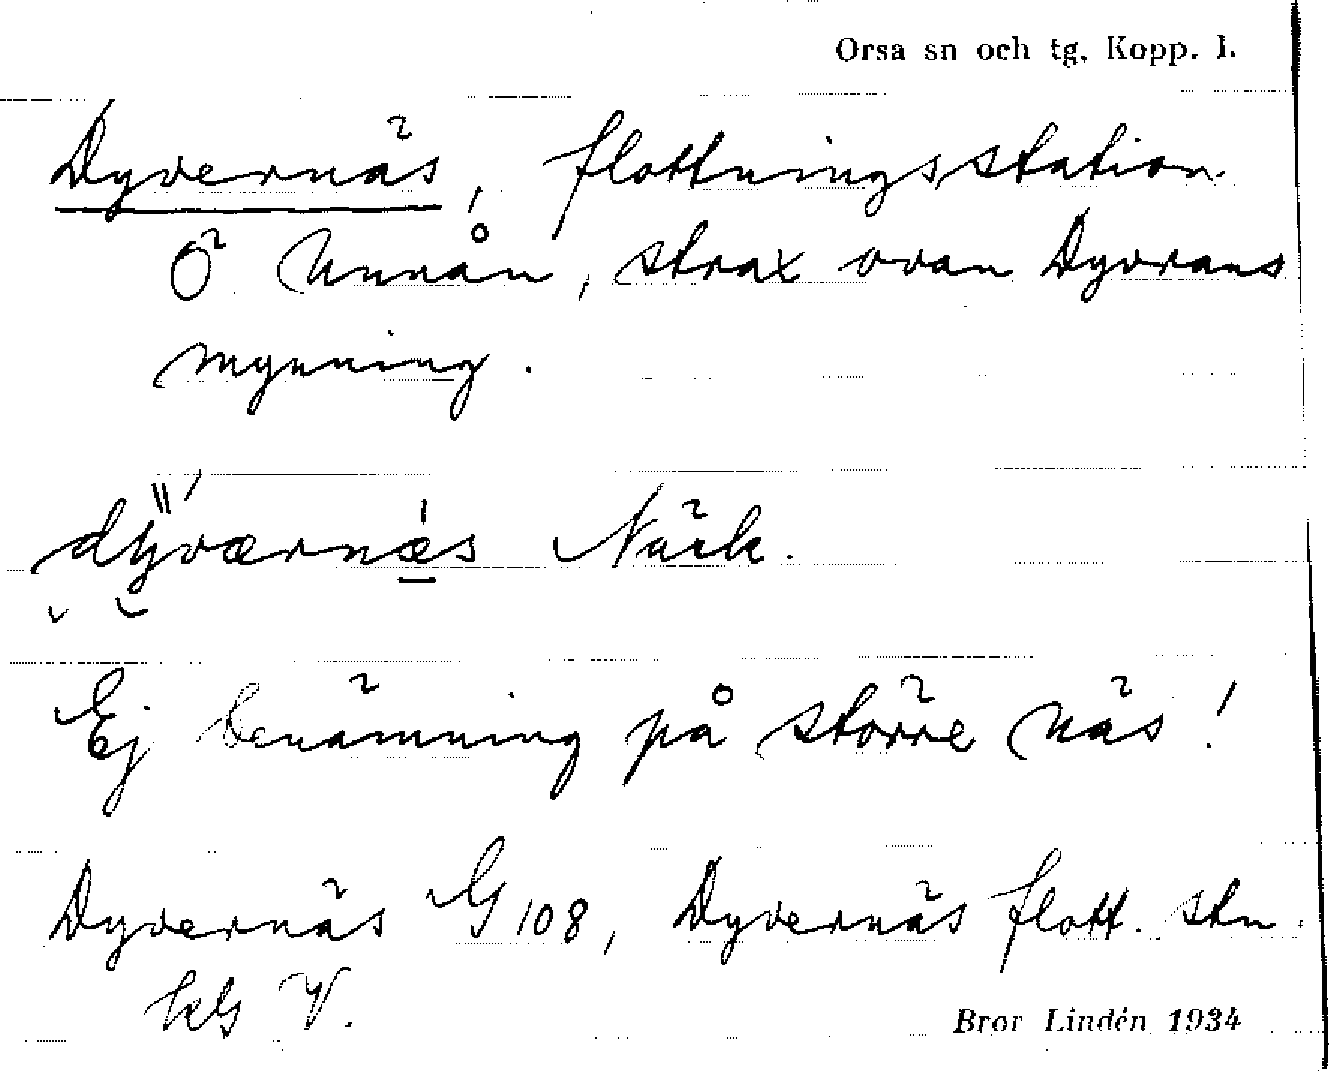 Orsa sn och tg, Kopp. l.
Dyvernäs, flottningsstation
Ö Unnån, strax ovan Dyvrans
mynning.
dyværnæs Näck.
Ej benämning på större näs!
Dyvernäs G 108, Dyvernäs flott. stn
kbs V.
Bror Lindén 1934